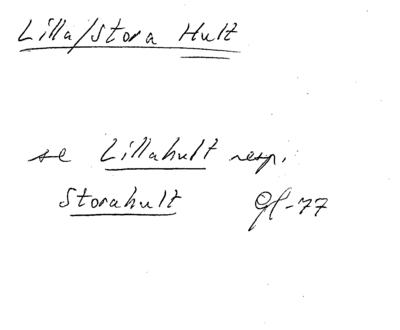 Lilla/Stora Hult
se Lillahult resp.
Storahult Gl-77